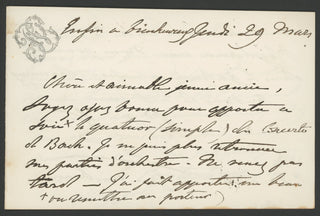 Enfin à bientôt Jeudi 29 Mars
Chère et aimable jeune amie,
Soyez assez bonne pour apporter ce
soir + le quatuor (simple) du Concerto
de Bach. Je ne puis plus retrouver
mes parties d'orchestre. Ne venez pas
tard — J'ai fait apporter un beau
+ ou remettre au porteur)